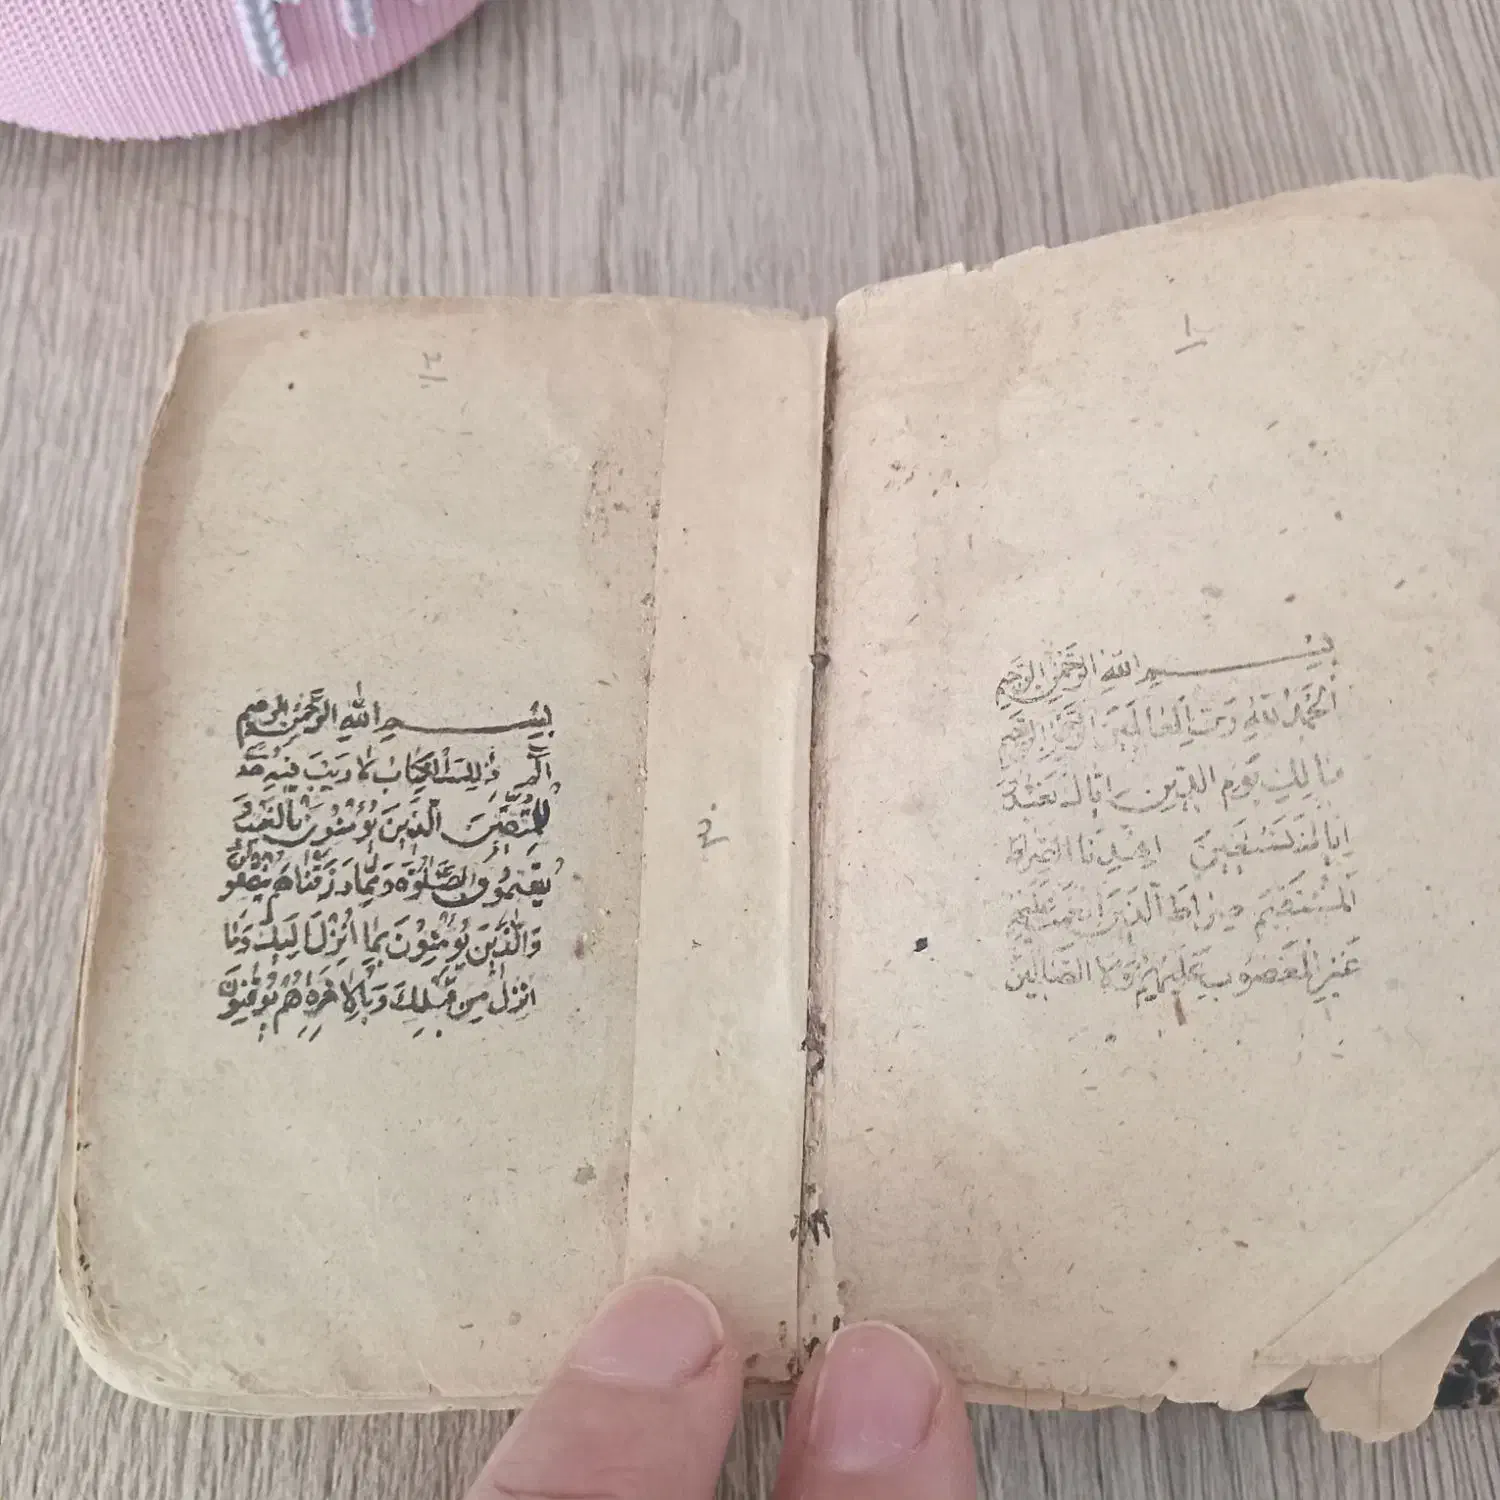 ١
بِسْمِ اللهِ الرَّحْمٰنِ الرَّحِيمِ
اَلْحَمْدُ لِلّٰهِ رَبِّ الْعَالَمِينَ الرَّحْمٰنِ الرَّحِيمِ
مَالِكِ يَوْمِ الدِّينِ اِيَّاكَ نَعْبُدُ وَ
اِيَّاكَ نَسْتَعِينُ اِهْدِنَا الصِّرَاطَ
الْمُسْتَقِيمَ صِرَاطَ الَّذِينَ اَنْعَمْتَ عَلَيْهِمْ
غَيْرِ الْمَغْضُوبِ عَلَيْهِمْ وَلَا الضَّالِّينَ
٢
بِسْمِ اللهِ الرَّحْمٰنِ الرَّحِيمِ
الٓمٓ ذٰلِكَ الْكِتَابُ لَا رَيْبَ فِيهِ هُدًى
لِلْمُتَّقِينَ اَلَّذِينَ يُؤْمِنُونَ بِالْغَيْبِ وَ
يُقِيمُونَ الصَّلٰوةَ وَمِمَّا رَزَقْنَاهُمْ يُنْفِقُونَ
وَالَّذِينَ يُؤْمِنُونَ بِمَا اُنْزِلَ اِلَيْكَ وَمَا
اُنْزِلَ مِنْ قَبْلِكَ وَبِالْاٰخِرَةِ هُمْ يُوقِنُونَ